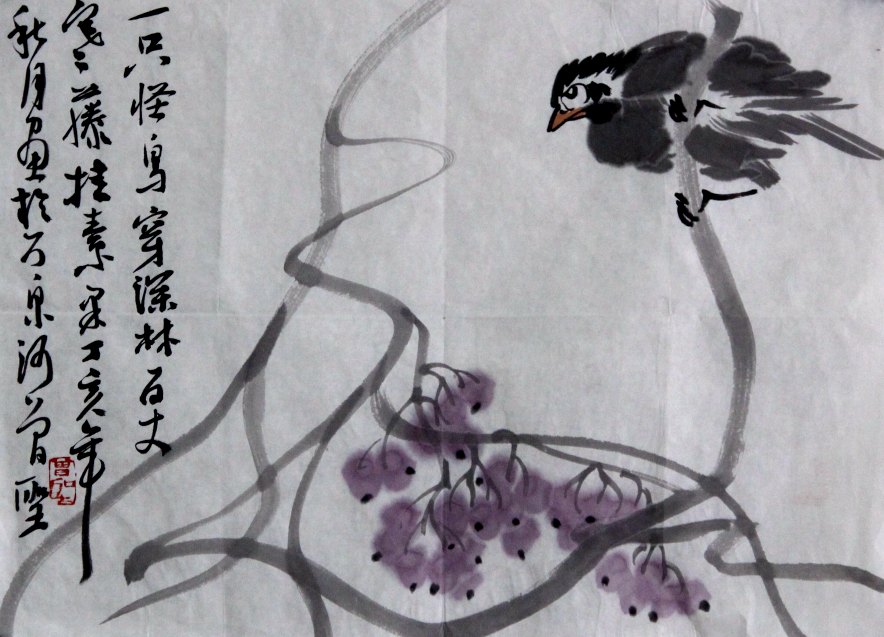 一只怪鸟穿深林百丈
寒藤挂素果丁亥年
秋月画於万泉河曾聖